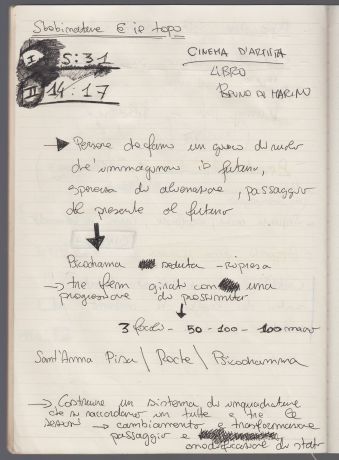 Sbobinature E il topo
I 5:31
II 14:17
CINEMA D'ARTISTA
LIBRO
BRUNO DI MARINO
Persone che fanno un gioco di ruolo
che immaginano il futuro,
esperienza di alienazione, passaggio
dal presente al futuro
Psicodramma seduta - ripresa
→ tre film girati con una
progressione di prossimità
3 focali - 50 - 100 - 100 macro
Sant'Anna Pisa / Rocte / Psicodramma
→ Costruire un sistema di inquadrature
che si raccordano in tutte e tre le
sessioni → cambiamento e trasformazione
passaggio e
modificazione di stato